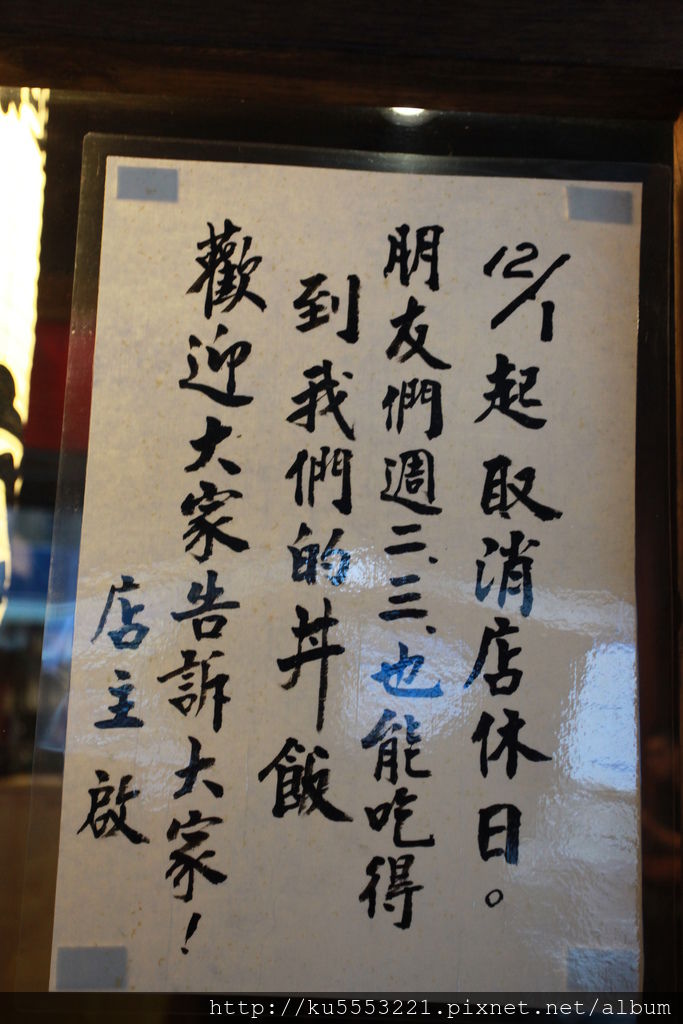 12/1起取消店休日。
朋友們週二、三、也能吃得
到我們的丼飯
歡迎大家告訴大家!
店主 啟
http://ku5553221.pixnet.net/album